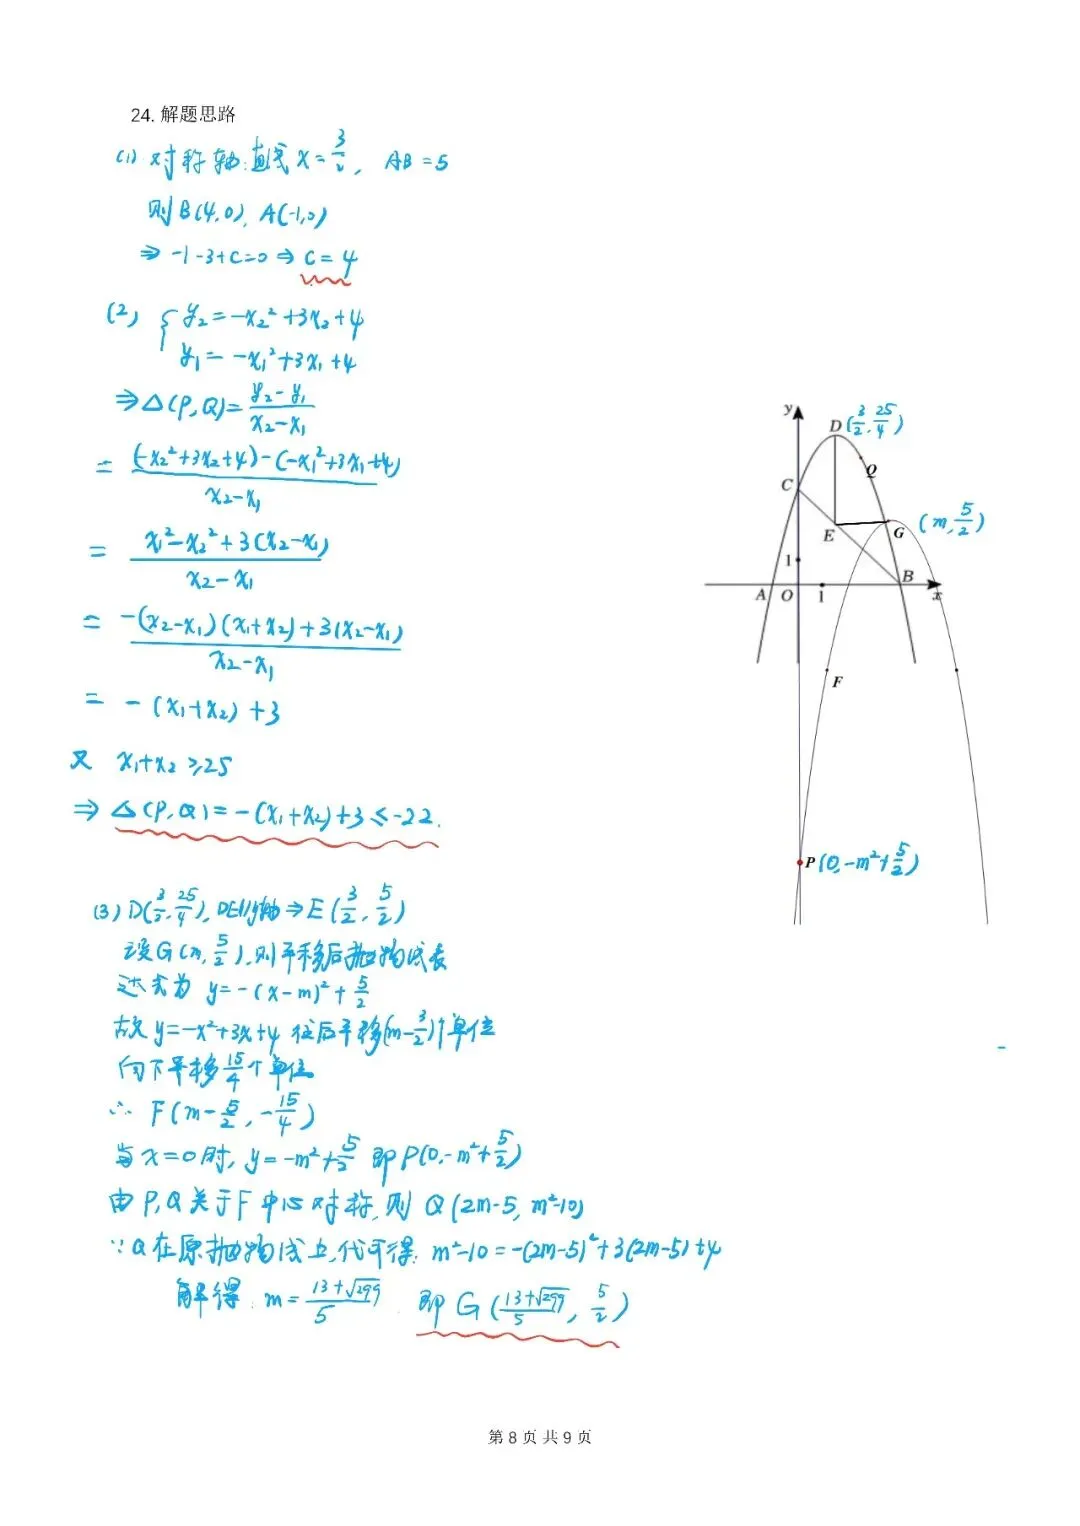 24. 解题思路
(1) 对称轴:直线 x=3/2, AB=5
则 B(4,0), A(-1,0)
⇒ -1-3+C=0 ⇒ C=4
(2) { y₂=-x₂²+3x₂+4
y₁=-x₁²+3x₁+4
⇒ △(P,Q)=(y₂-y₁)/(x₂-x₁)
= ((-x₂²+3x₂+4)-(-x₁²+3x₁+4))/(x₂-x₁)
= (x₁²-x₂²+3(x₂-x₁))/(x₂-x₁)
= (-(x₂-x₁)(x₁+x₂)+3(x₂-x₁))/(x₂-x₁)
= -(x₁+x₂)+3
又 x₁+x₂≥25
⇒ △(P,Q)=-(x₁+x₂)+3≤-22.
(3) D(3/2, 25/4), DE∥y轴 ⇒ E(3/2, 5/2)
设G(m, 5/2), 则平移后抛物线表
达式为 y=-(x-m)²+5/2
故 y=-x²+3x+4 往右平移(m-3/2)个单位
向下平移15/4个单位
∴ F(m-5/2, -15/4)
当 x=0时, y=-m²+5/2 即P(0,-m²+5/2)
由P,Q关于F中心对称,则 Q(2m-5, m²-10)
∵Q在原抛物线上,代入可得: m²-10=-(2m-5)²+3(2m-5)+4
解得: m=(13+√299)/5. 即 G((13+√299)/5, 5/2)
y
D (3/2, 25/4)
Q
C
E
G (m, 5/2)
1
A O 1 B x
F
P(0,-m²+5/2)
第 8 页 共 9 页